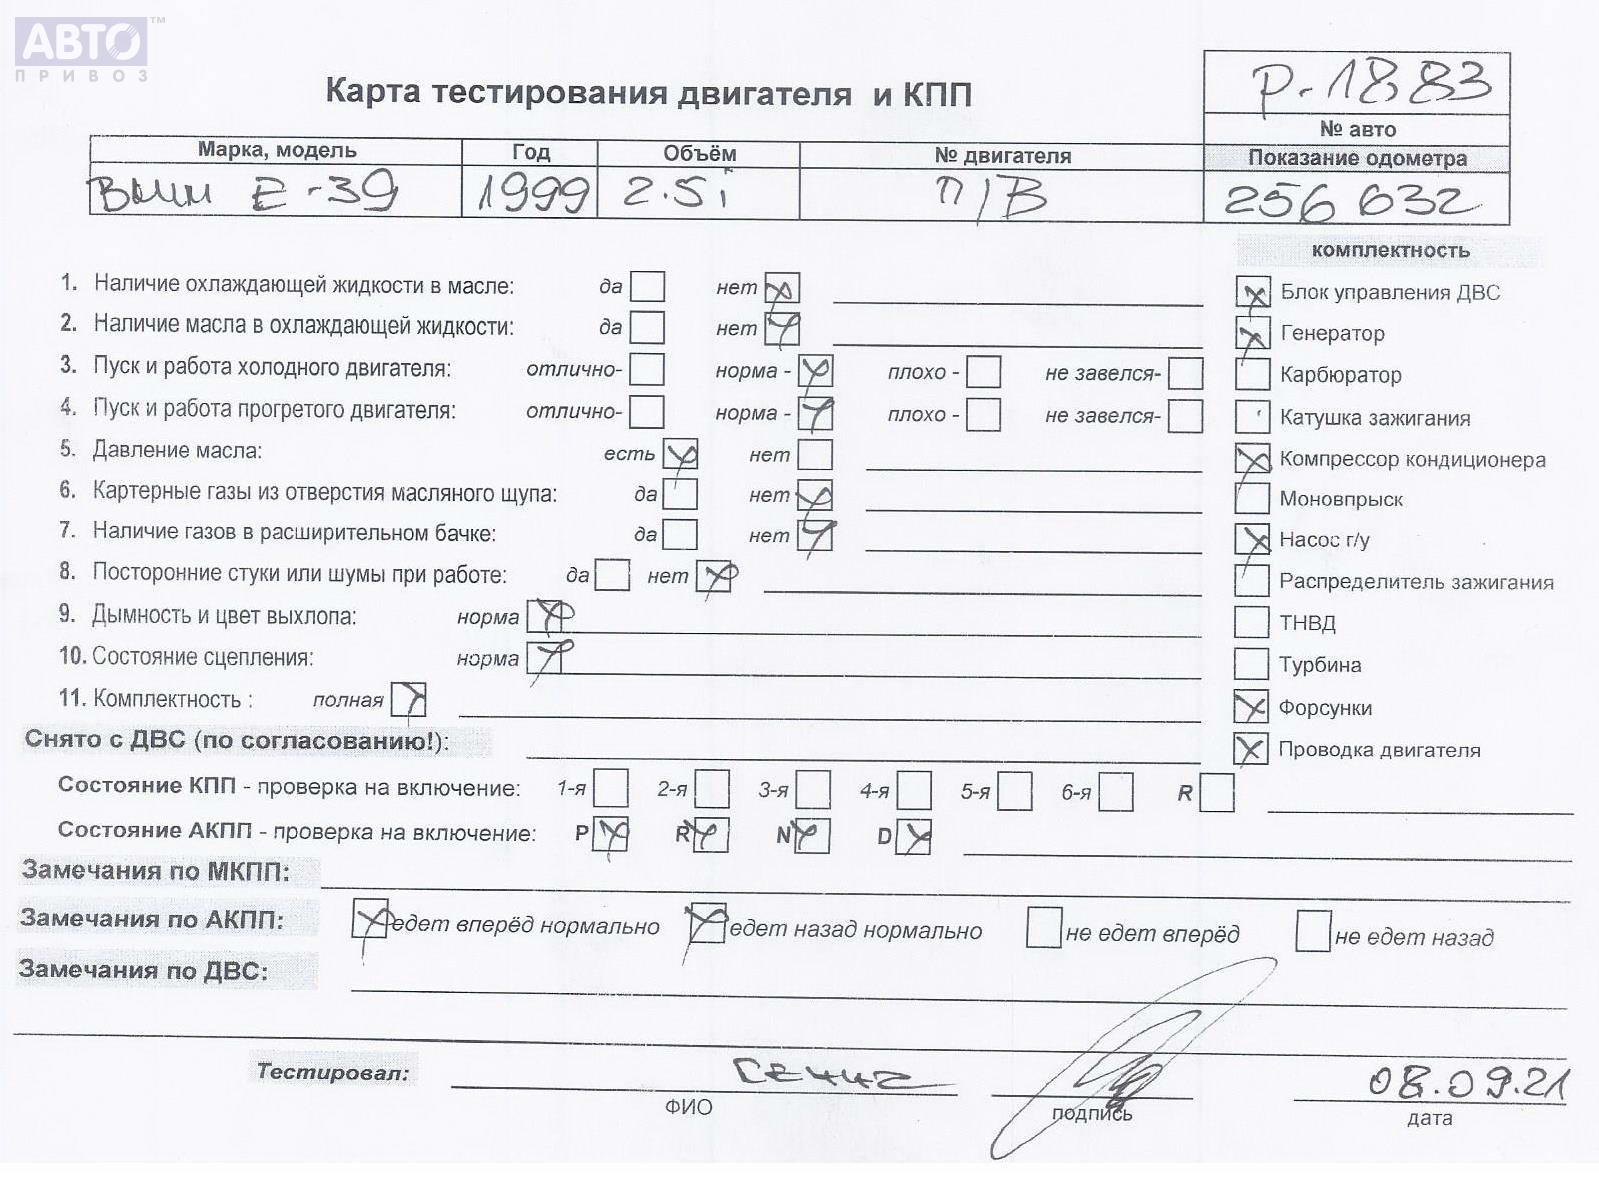 АВТО™
ПРИВОЗ
Карта тестирования двигателя и КПП
Р-1883
№ авто
Марка, модель Год Объём № двигателя Показание одометра
БМW E-39 1999 2.5i П/В 256 632
комплектность
1. Наличие охлаждающей жидкости в масле: да нет
Блок управления ДВС
2. Наличие масла в охлаждающей жидкости: да нет
Генератор
3. Пуск и работа холодного двигателя: отлично- норма - плохо - не завелся-
Карбюратор
4. Пуск и работа прогретого двигателя: отлично- норма - плохо - не завелся-
Катушка зажигания
5. Давление масла: есть нет
Компрессор кондиционера
6. Картерные газы из отверстия масляного щупа: да нет
Моновпрыск
7. Наличие газов в расширительном бачке: да нет
Насос г/у
8. Посторонние стуки или шумы при работе: да нет
Распределитель зажигания
9. Дымность и цвет выхлопа: норма
ТНВД
10. Состояние сцепления: норма
Турбина
11. Комплектность : полная
Форсунки
Снято с ДВС (по согласованию!):
Проводка двигателя
Состояние КПП - проверка на включение: 1-я 2-я 3-я 4-я 5-я 6-я R
Состояние АКПП - проверка на включение: P R N D
Замечания по МКПП:
Замечания по АКПП: едет вперёд нормально едет назад нормально не едет вперёд не едет назад
Замечания по ДВС:
Тестировал: 08.09.21
ФИО подпись дата